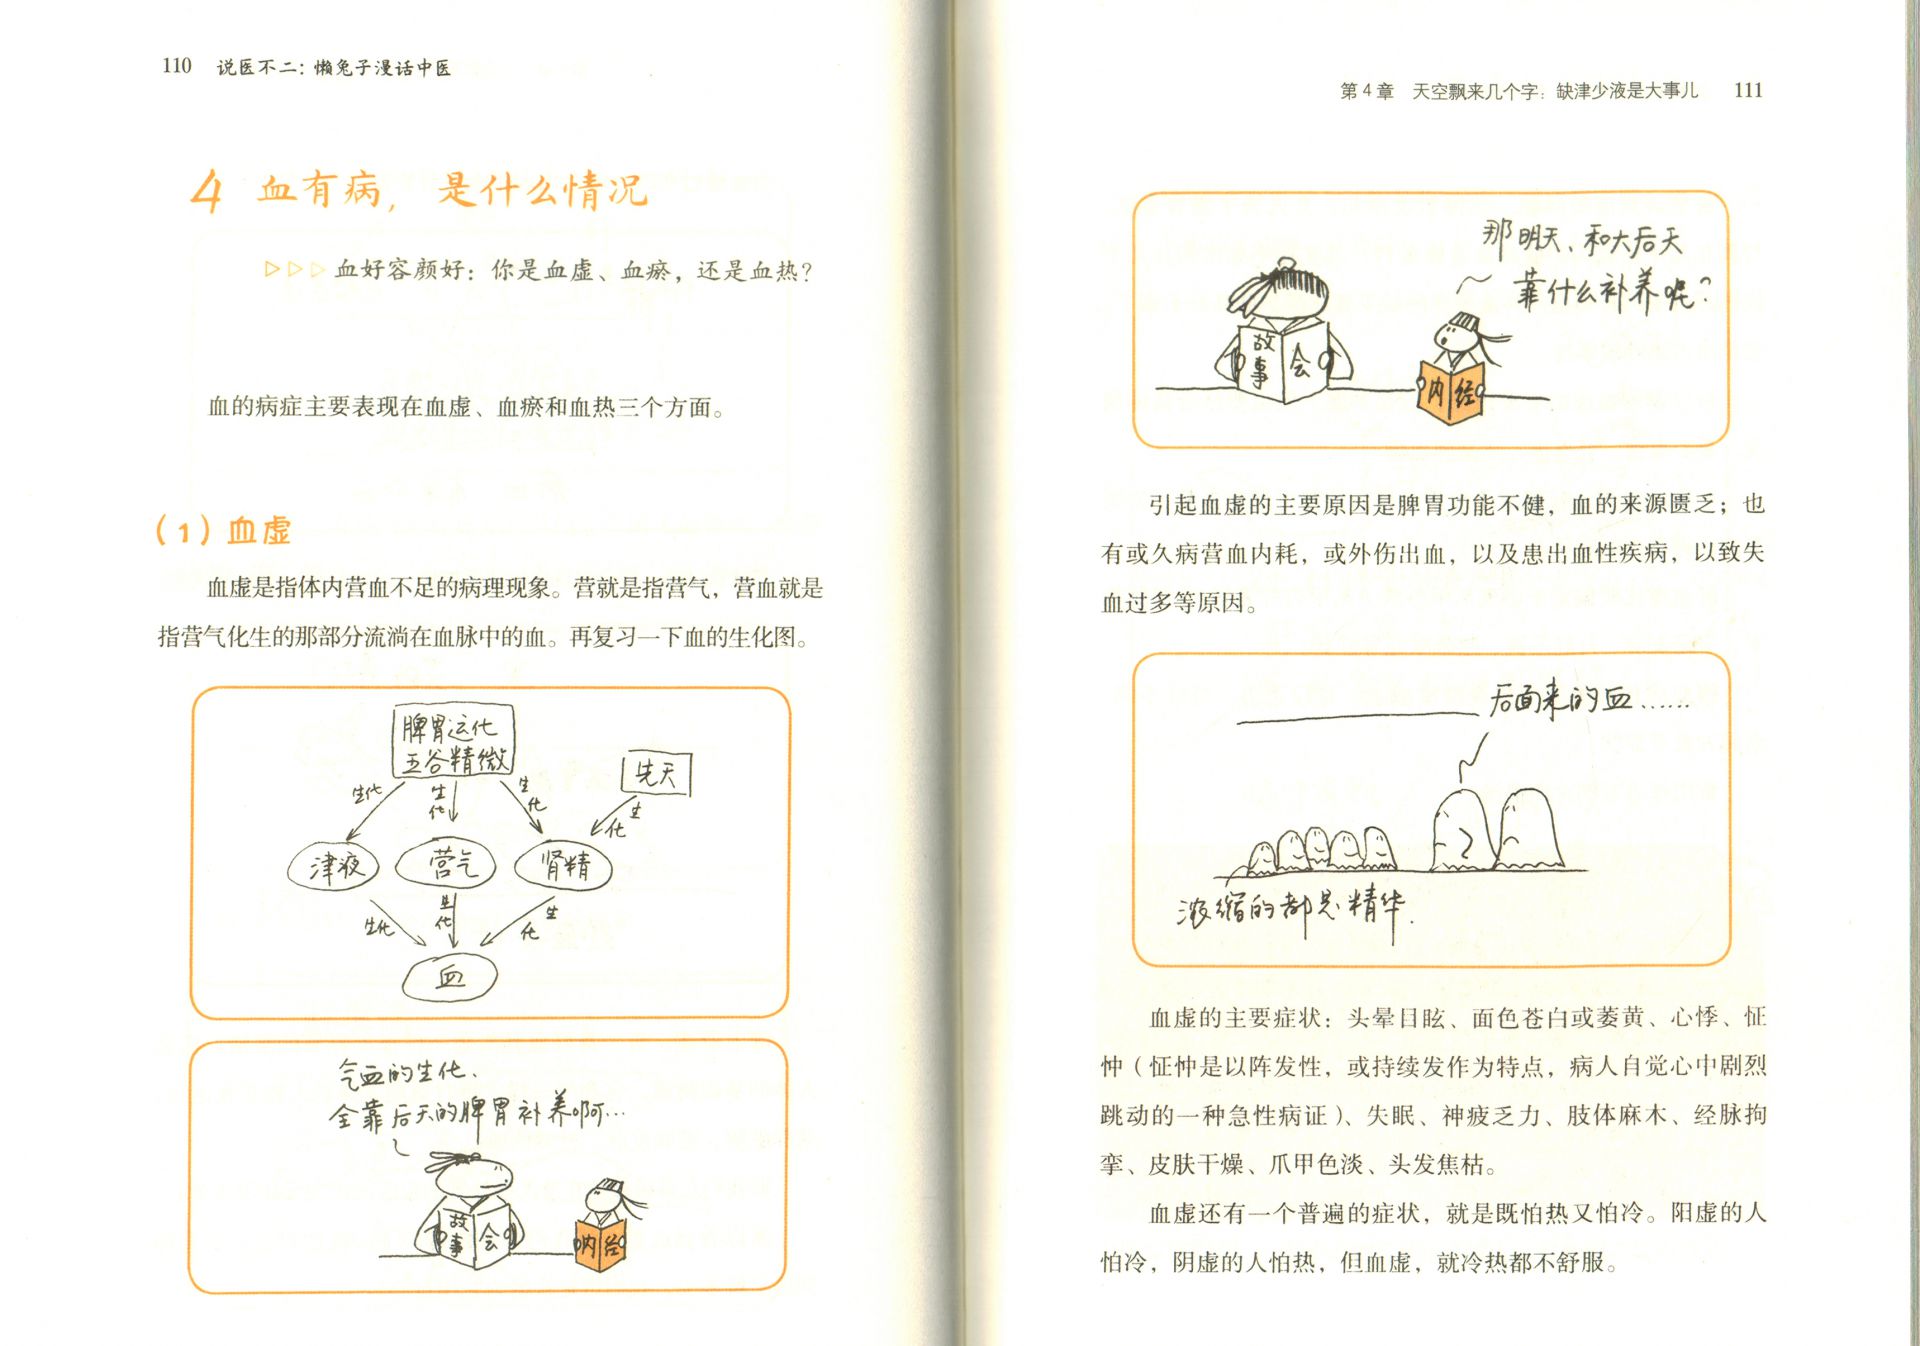 110 说医不二：懒兔子漫话中医
4 血有病，是什么情况
▷▷▷血好容颜好：你是血虚、血瘀，还是血热？
血的病症主要表现在血虚、血瘀和血热三个方面。
（1）血虚
血虚是指体内营血不足的病理现象。营就是指营气，营血就是
指营气化生的那部分流淌在血脉中的血。再复习一下血的生化图。
脾胃运化
五谷精微
先天
生化
生化
生化
生化
津液
营气
肾精
生化
生化
生化
血
气血的生化、
全靠后天的脾胃补养啊…
故事会
内经
第4章 天空飘来几个字：缺津少液是大事儿 111
那明天、和大后天
靠什么补养呢？
故事会
内经
引起血虚的主要原因是脾胃功能不健，血的来源匮乏；也
有或久病营血内耗，或外伤出血，以及患出血性疾病，以致失
血过多等原因。
后面来的血……
浓缩的都是精华.
血虚的主要症状：头晕目眩、面色苍白或萎黄、心悸、怔
忡（怔忡是以阵发性，或持续发作为特点，病人自觉心中剧烈
跳动的一种急性病证）、失眠、神疲乏力、肢体麻木、经脉拘
挛、皮肤干燥、爪甲色淡、头发焦枯。
血虚还有一个普遍的症状，就是既怕热又怕冷。阳虚的人
怕冷，阴虚的人怕热，但血虚，就冷热都不舒服。